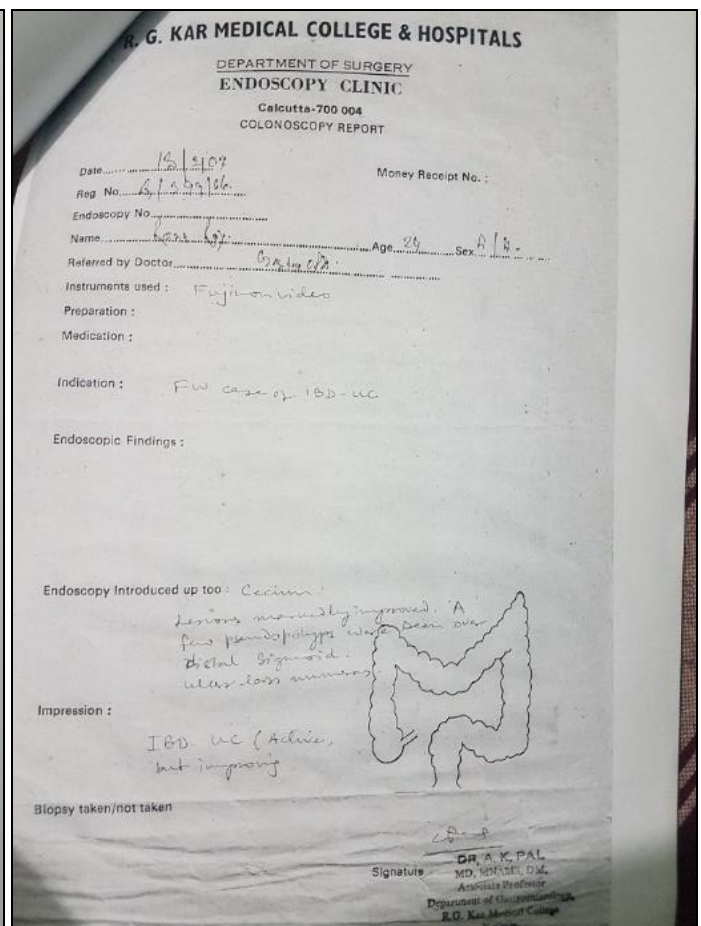 R. G. KAR MEDICAL COLLEGE & HOSPITALS
DEPARTMENT OF SURGERY
ENDOSCOPY CLINIC
Calcutta-700 004
COLONOSCOPY REPORT
Date
Money Receipt No. :
Reg No.
Endoscopy No.
Name Age 24 Sex
Referred by Doctor
Instruments used : Fujinon video
Preparation :
Medication :
Indication : FU case of IBD-UC
Endoscopic Findings :
Endoscopy Introduced up too : Cecum.
Lesions markedly improved. A
few pseudopolyps were seen over
distal Sigmoid.
ulcer less numerous.
Impression :
IBD-UC (Active,
but improving
Biopsy taken/not taken
Signature
DR. A. K. PAL
MD, MNAMS, DM,
Associate Professor
Department of Gastroenterology
R.G. Kar Medical College